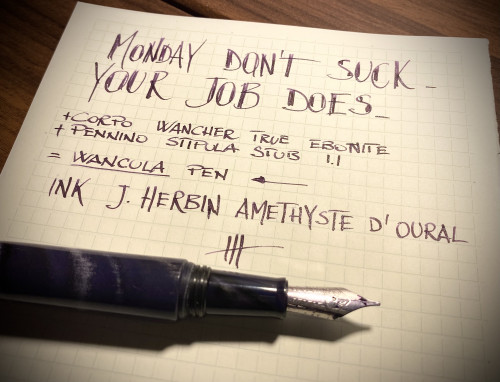 MONDAY DON'T SUCK_
YOUR JOB DOES_
+CORPO WANCHER TRUE EBONITE
+PENNINO STIPULA STUB 1.1
= WANCULA PEN ←
INK J. HERBIN AMETHYSTE D'OURAL